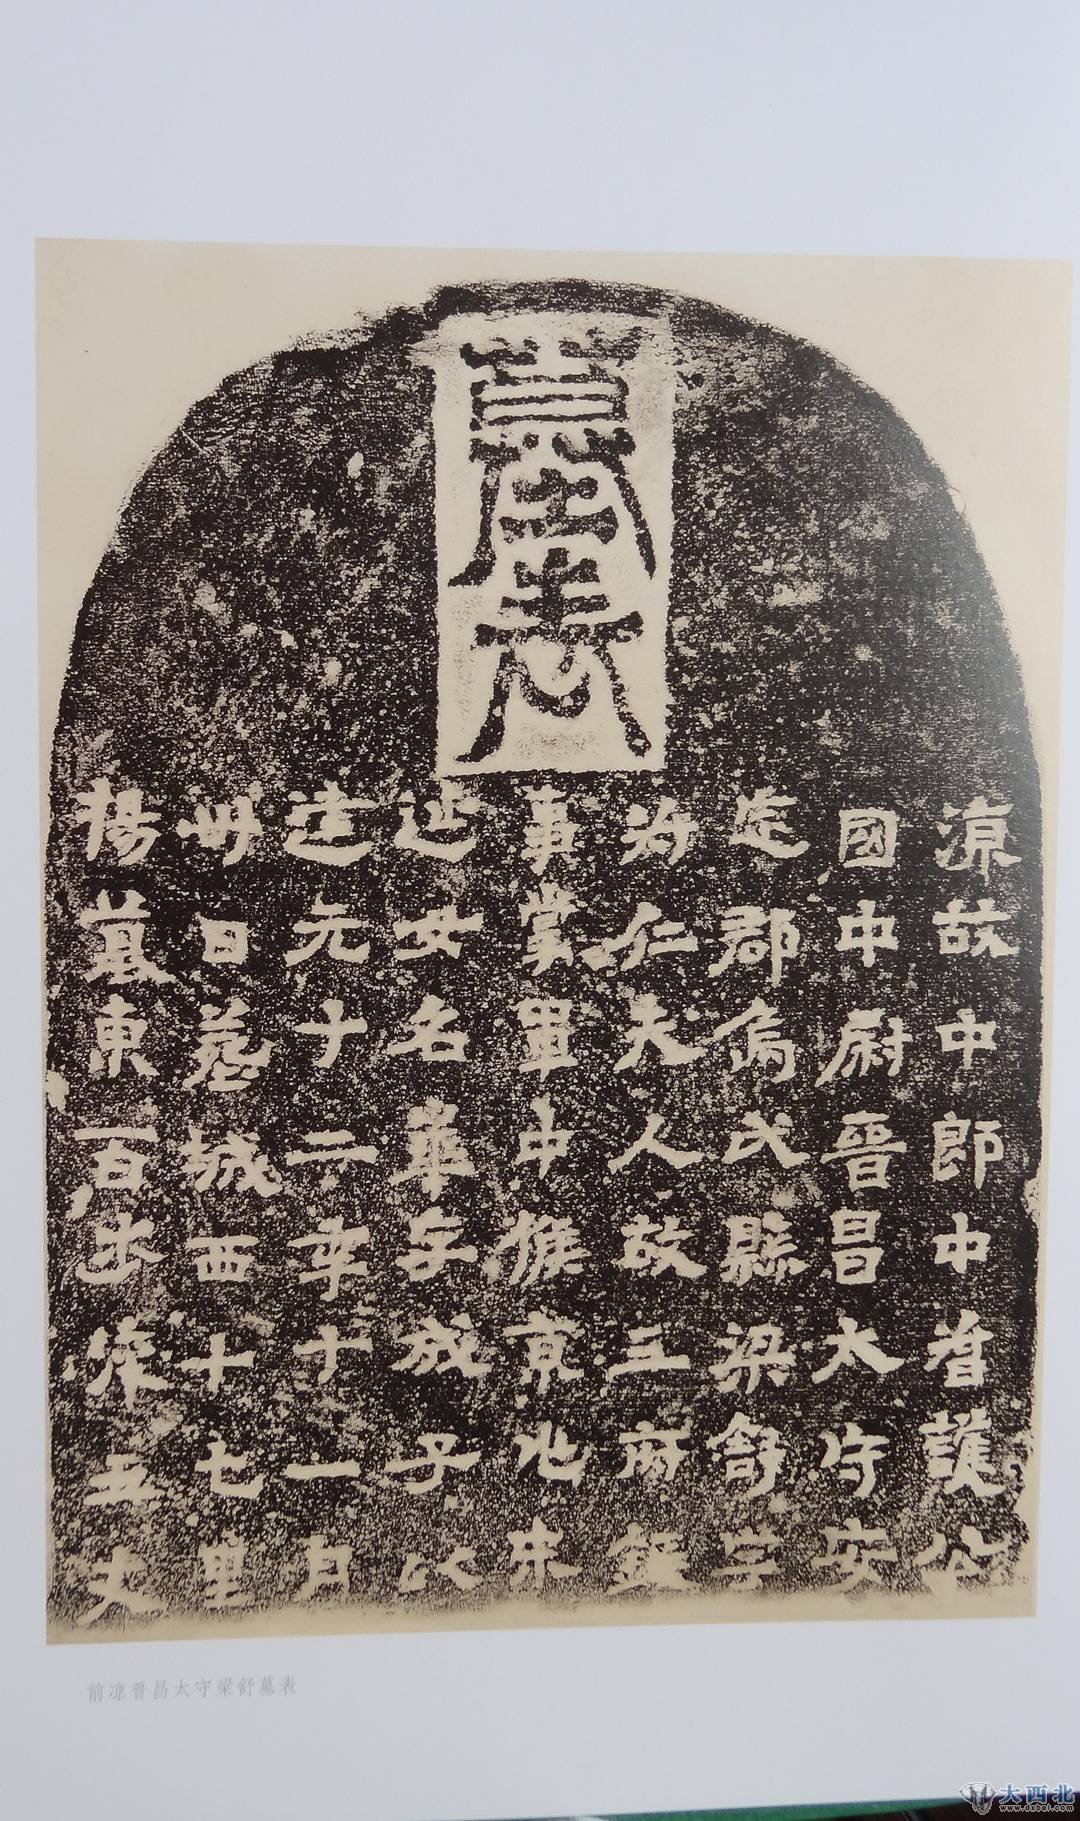 墓表
凉故中郎中督護公
國中尉晉昌太守安
定郡烏氏縣梁舒字
叔仁夫人故三府錄
事掌軍中候京兆宋
延女名華字成子以
建元十二年十一月
卅日葬城西十七里
楊墓東百步深五丈
前凉晋昌太守梁舒墓表
大西北
www.dxbei.com